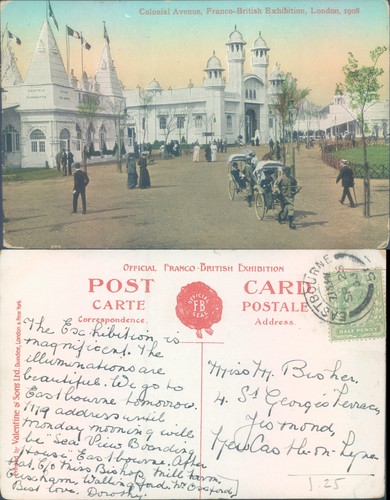 Colonial Avenue, Franco-British Exhibition, London, 1908
OFFICIAL FRANCO-BRITISH EXHIBITION
POST CARD
CARTE POSTALE
Correspondence.
Address.
OFFICIAL
F.B
SEAL
EASTBOURNE
HALF PENNY
Valentine & Sons Ltd. Dundee, London & New York
The Exhibition is
magnificent. The
illuminations are
beautiful. We go to
Eastbourne tomorrow.
My address until
Monday morning will
be "Sea View Boarding
House", Eastbourne. After
that, c/o Miss Bishop, Mill Farm,
Wallingford, Nr Oxford
Best love. Dorothy.
Miss M. Bisher,
4. St George's Terrace,
Jesmond,
Newcastle-on-Tyne
1.25